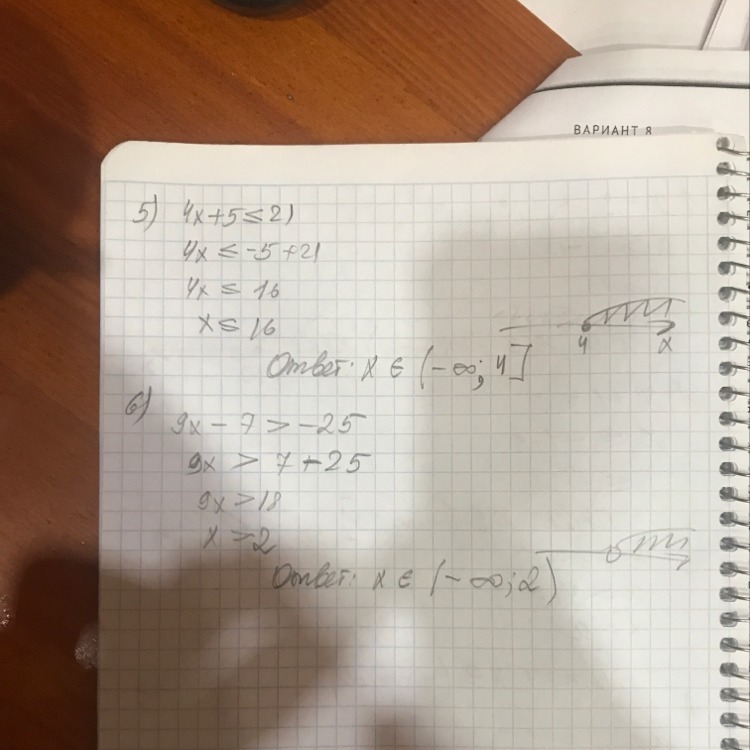 ВАРИАНТ 8
5) 4x+5≤21
4x ≤ -5+21
4x ≤ 16
x ≤ 16
4 x
Ответ: x ∈ (-∞; 4]
6)
9x - 7 > -25
9x > 7 + 25
9x > 18
x > 2
Ответ: x ∈ (-∞; 2)